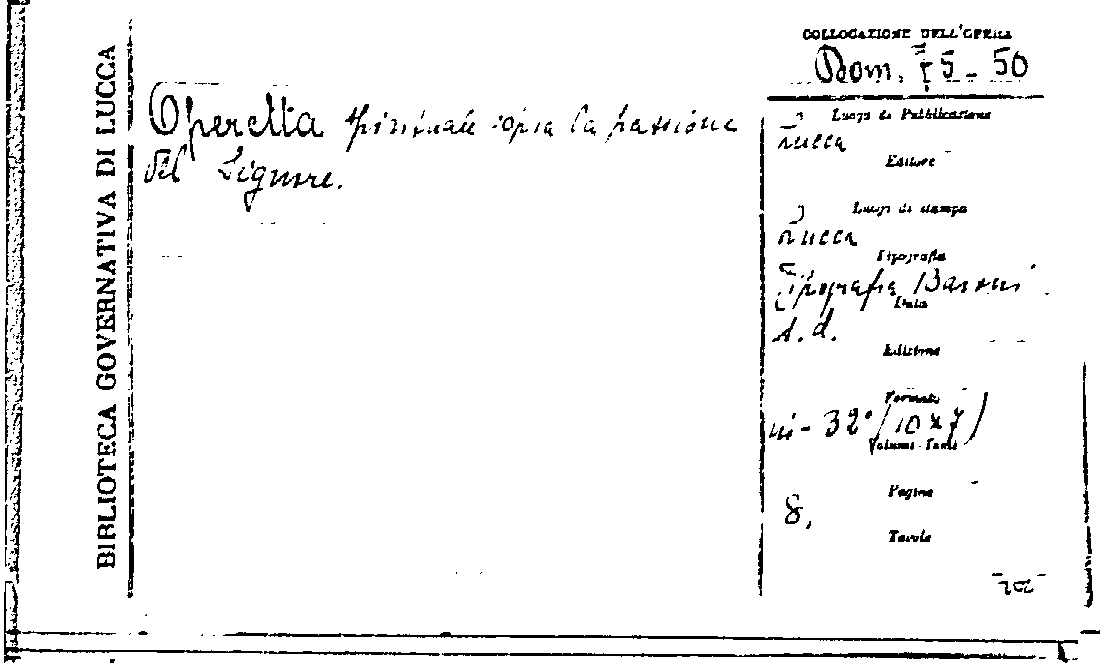 BIBLIOTECA GOVERNATIVA DI LUCCA
Operetta spirituale sopra la passione
del Signore.
COLLOCAZIONE DELL'OPERA
Bom. 5 - 50
Luogo di Pubblicazione
Lucca
Editore
Luogo di stampa
Lucca
Tipografia
Tipografia Baroni
Data
s.d.
Edizione
Formato
in-32° (10x7)
Volumi - Tomi
Pagine
8,
Tavole